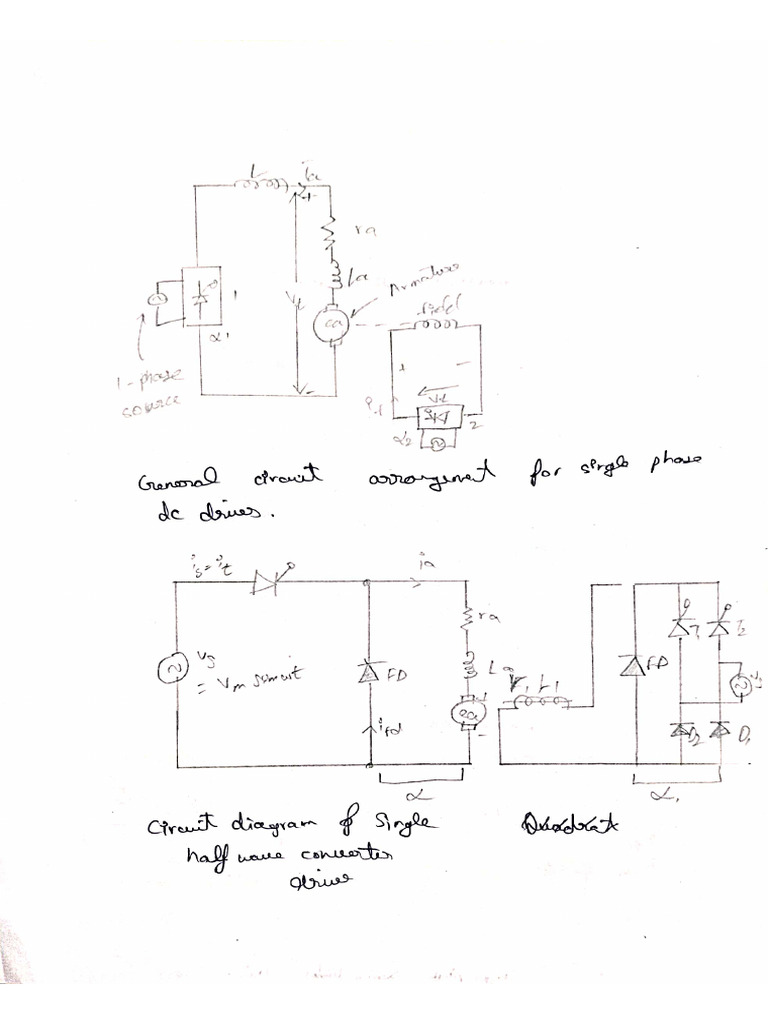 L ia
+
ra
La
Armature
field
1
Vt
ea
α1
1-phase
source
2
α2
General circuit arrangement for single phase
dc drives.
is = it
ia
ra
vs
= Vm sinwt
FD
La
ea
ifd
α
FD
T1
T2
vs
D2
D1
α1
Circuit diagram of Single
half wave converter
drive